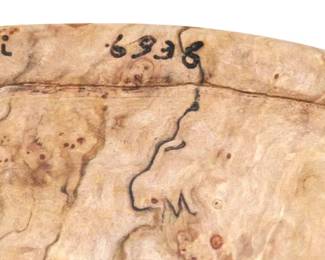 i 6938